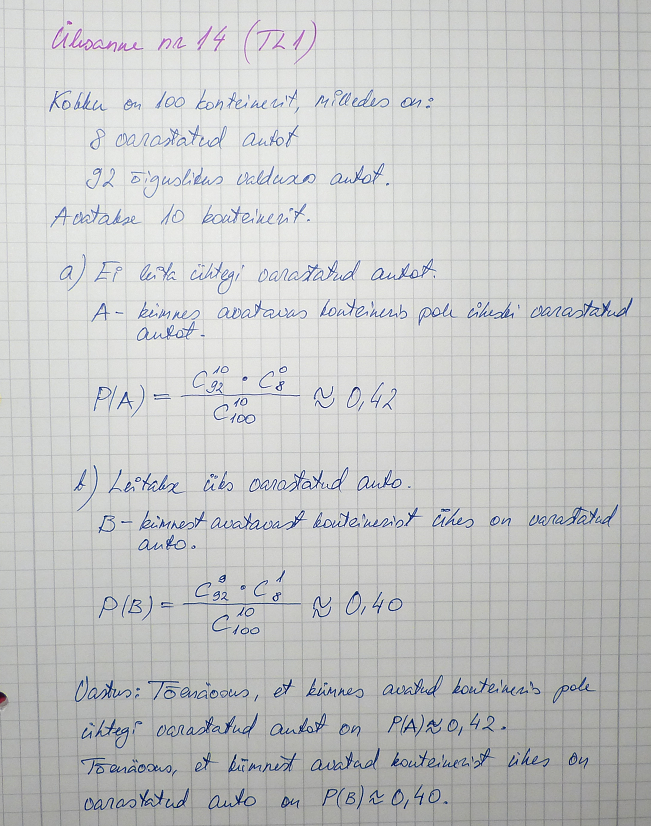 Ülesanne nr 14 (TL1)
Kokku on 100 konteinerit, milledes on:
8 varastatud autot
92 õiguslikus valduses autot.
Avatakse 10 konteinerit.
a) Ei leita ühtegi varastatud autot.
A - kümnes avatavas konteineris pole ühtki varastatud
autot.
P(A) = \frac{C_{92}^{10} \cdot C_{8}^{0}}{C_{100}^{10}} ≈ 0,42
b) Leitakse üks varastatud auto.
B - kümnest avatavast konteinerist ühes on varastatud
auto.
P(B) = \frac{C_{92}^{9} \cdot C_{8}^{1}}{C_{100}^{10}} ≈ 0,40
Vastus: Tõenäosus, et kümnes avatud konteineris pole
ühtegi varastatud autot on P(A)≈0,42.
Tõenäosus, et kümnest avatud konteinerist ühes on
varastatud auto on P(B)≈0,40.